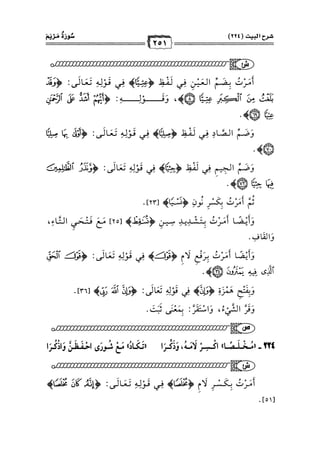 شرح البيت (٢٢٤)
٢٥١
سُورَةُ مَرْيَمَ
أَمَرْتُ بِضَمِّ العَيْنِ فِي لَفْظِ ﴿عُتِيًّا﴾ فِي قَوْلِهِ تَعَالَى: ﴿وَقَدْ
بَلَغْتُ مِنَ ٱلْكِبَرِ عِتِيًّا﴾، وَقَوْلِهِ: ﴿أَيُّهُمْ أَشَدُّ عَلَى ٱلرَّحْمَٰنِ
عِتِيًّا﴾.
وَضَمِّ الصَّادِ فِي لَفْظِ ﴿صُلِيًّا﴾ فِي قَوْلِهِ تَعَالَى: ﴿أَوْلَىٰ بِهَا صِلِيًّا﴾
وَضَمِّ الجِيمِ فِي لَفْظِ ﴿جُثِيًّا﴾ فِي قَوْلِهِ تَعَالَى: ﴿وَنَذَرُ ٱلظَّٰلِمِينَ
فِيهَا جِثِيًّا﴾.
ثُمَّ أَمَرْتُ بِكَسْرِ نُونِ ﴿نِسْيًا﴾ [٢٣].
وَأَيْضًا أَمَرْتُ بِتَشْدِيدِ سِينِ ﴿تَسَّٰقَطْ﴾ [٢٥] مَعَ فَتْحَيِ التَّاءِ،
وَالقَافِ.
وَأَيْضًا أَمَرْتُ بِرَفْعِ لَامِ ﴿قَوْلُ﴾ فِي قَوْلِهِ تَعَالَى: ﴿قَوْلَ ٱلْحَقِّ
ٱلَّذِي فِيهِ يَمْتَرُونَ﴾.
وَبِفَتْحِ هَمْزَةِ ﴿وَأَنَّ﴾ فِي قَوْلِهِ تَعَالَى: ﴿وَإِنَّ ٱللَّهَ رَبِّي﴾ [٣٦].
وَقَرَّ الشَّيْءُ، وَاسْتَقَرَّ: بِمَعْنَى ثَبَتَ.
٢٢٤ ـ «مُخْلَصًا» اكْسِرْ لَامَهُ، وَذَكِّرَا «تَكَادُ» مَعْ شُورَى احْفَظَنْ وَاذْكُرَا
أَمَرْتُ بِكَسْرِ لَامِ ﴿مُخْلِصًا﴾ فِي قَوْلِهِ تَعَالَى: ﴿إِنَّهُۥ كَانَ مُخْلَصًا﴾
[٥١].